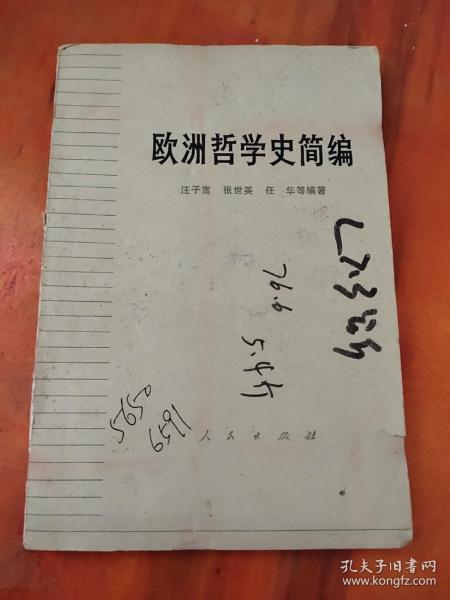 欧洲哲学史简编
汪子嵩 张世英 任 华等编著
76.6
5.45
5650
6591
人民出版社
孔夫子旧书网
www.kongfz.com